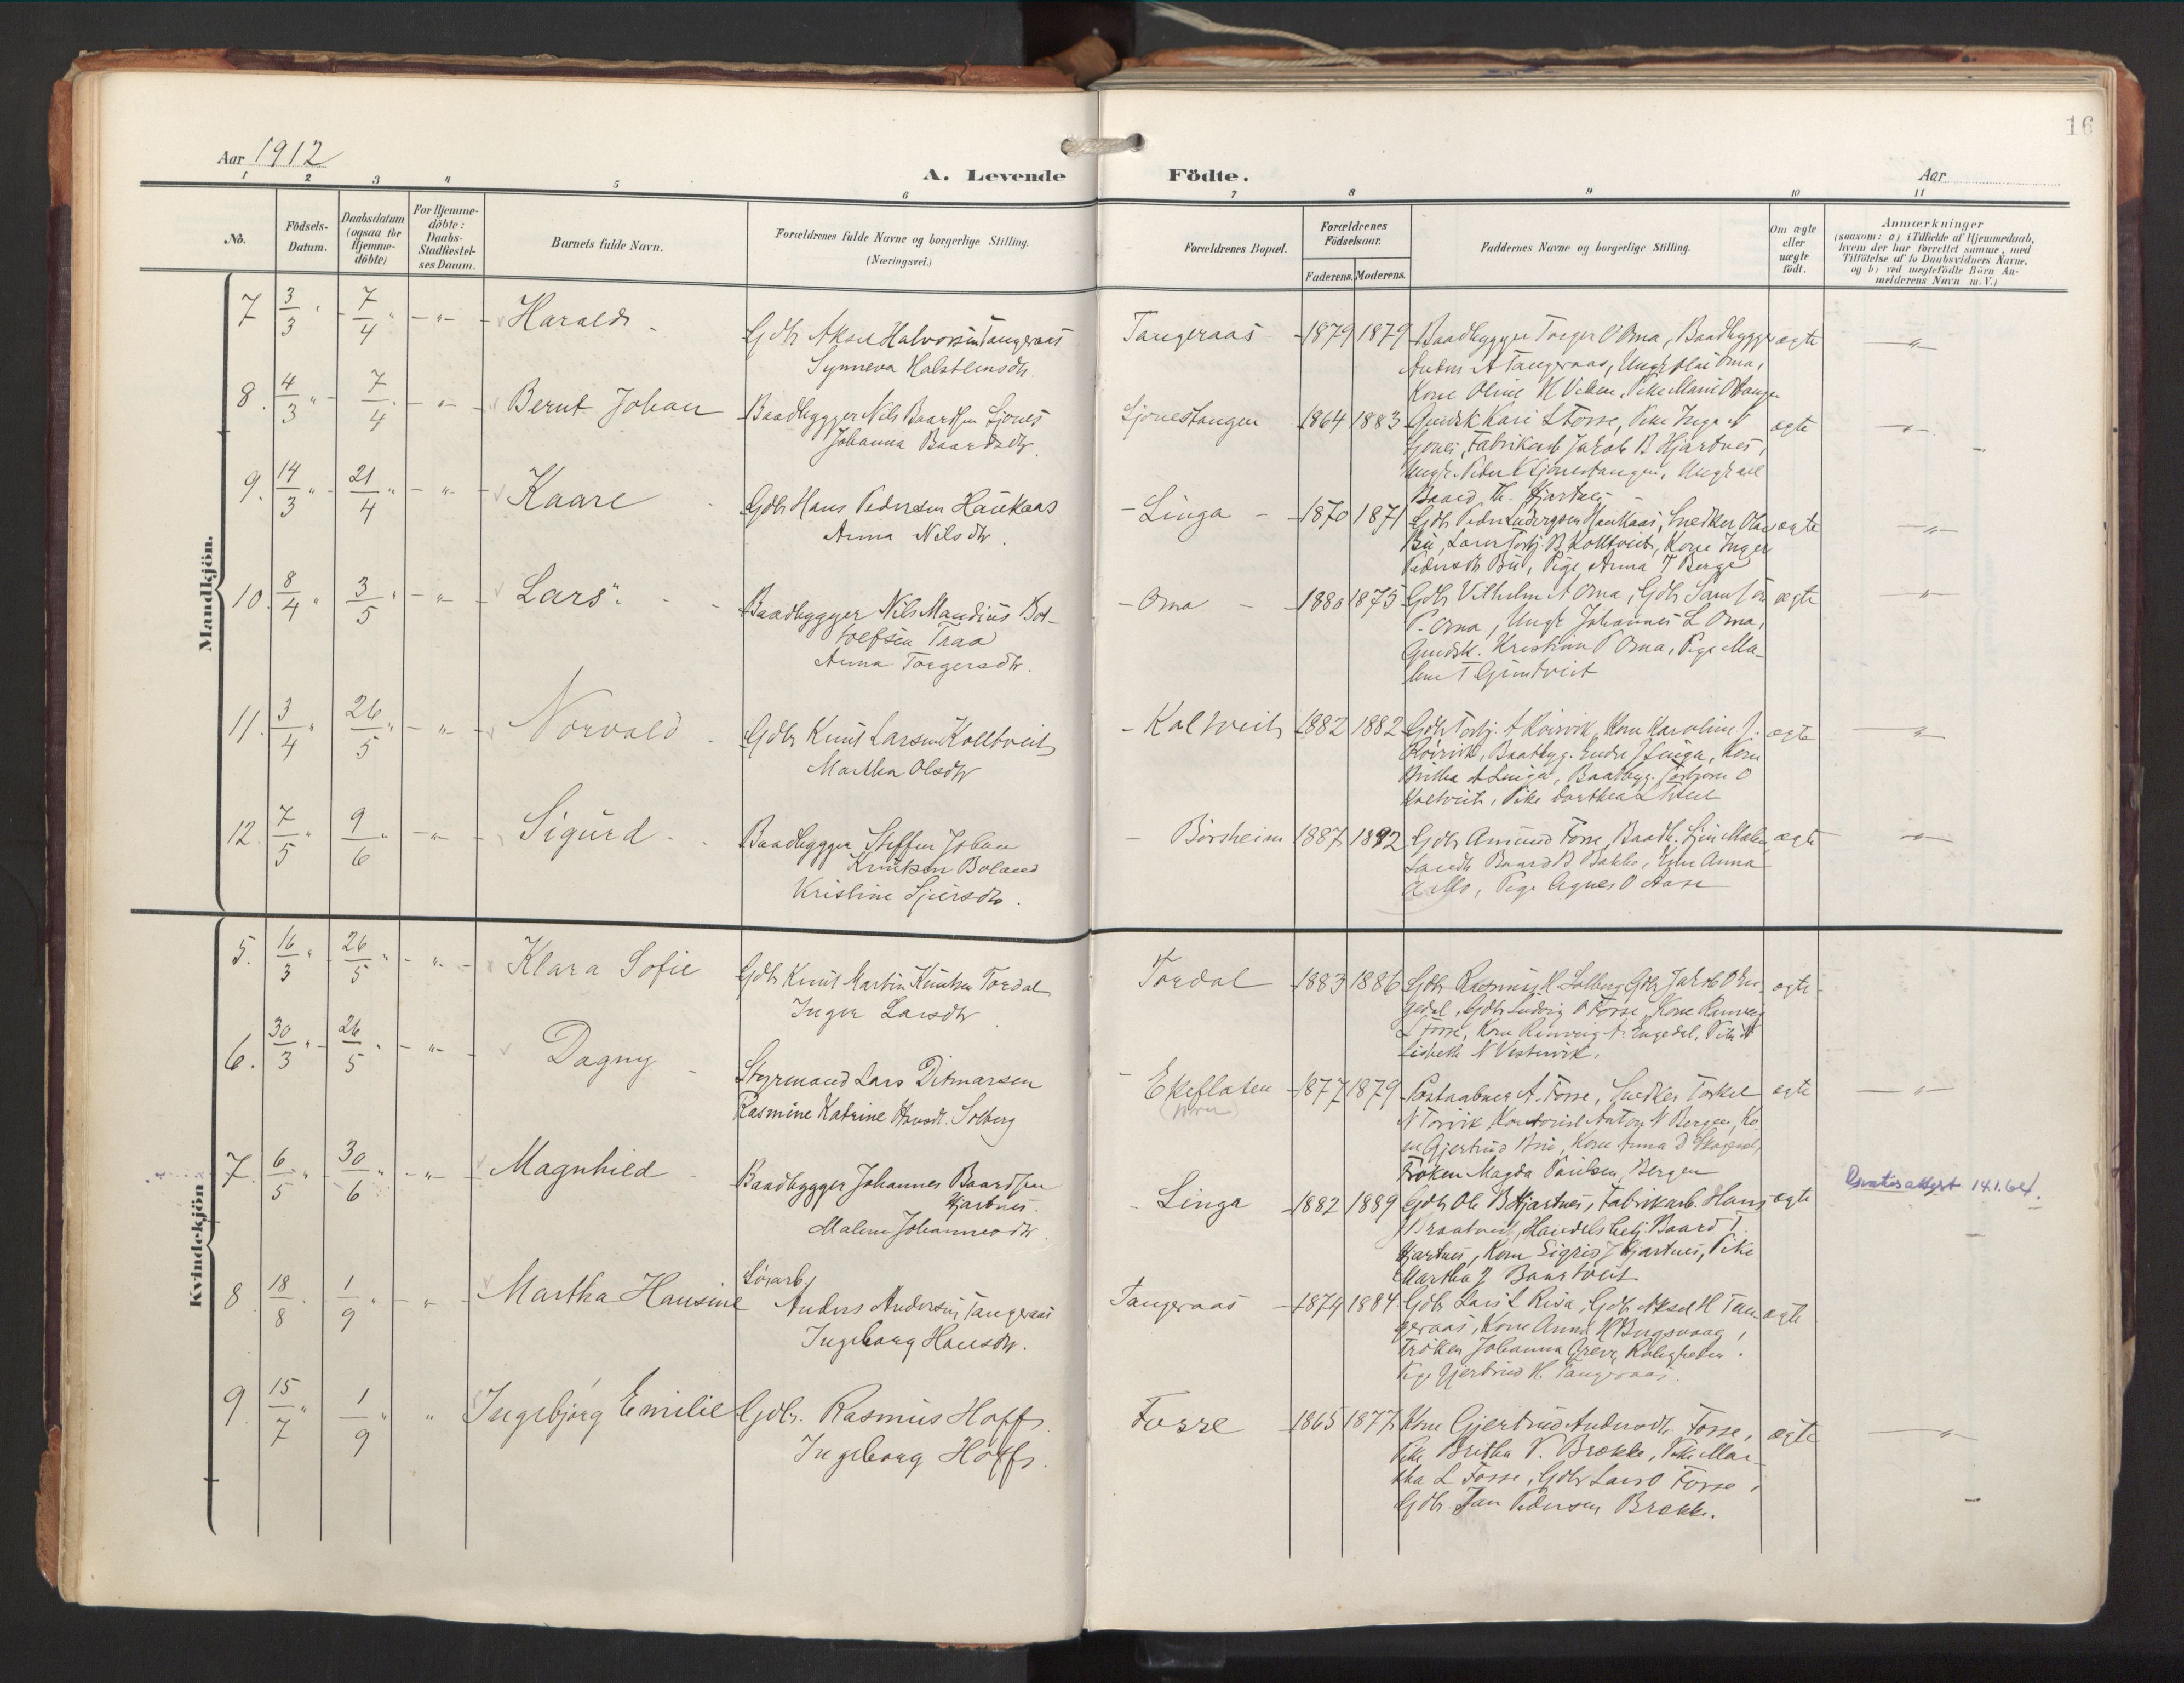 16
Aar 1912
A. Levende Födte.
Aar
1 2 3 4 5 6 7 8 9 10 11
No.
Födsels-
Datum.
Daabsdatum
(ogsaa for
Hjemme-
döbte)
For Hjemme-
döbte:
Daabs-
Stadfæstel-
ses Datum.
Barnets fulde Navn.
Forældrenes fulde Navne og borgerlige Stilling.
(Næringsvei.)
Forældrenes Bopæl.
Forældrenes
Födselsaar.
Faderens. Moderens.
Faddernes Navne og borgerlige Stilling.
Om ægte
eller
uægte
födt.
Anmærkninger
(saasom: a) i Tilfælde af Hjemmedaab,
hvem der har forrettet samme, med
Tilföielse af to Daabsvidners Navne,
og b) ved uægtefödte Börn An-
melderens Navn m. V.)
Mandkjön.
7 3/3 " 7/4 " - " - Harald
Gdbr Aksel Halvorsen Tangeraas
Synneva Halsteinsdtr.
Tangeraas 1879 1879
Baadbygger Torger O Oma, Baadbygger
Anders A Tangeraas, Ungk Oma,
Kone Oline H Viken, Pike Marie
ægte - " -
8. 4/3 " 7/4 " - " - Bernt Johan
Baadbygger Nils Baardsen Ljones
Johanna Baardsdtr.
Ljonestangen 1864 1883
Gmdsk Kari L Fosse, Pike Inga N
Ljones, Fabrikarb Jakob B Hjartnes,
Ungk. Peder Ljonestangen, Ungkarl
Baard Th. Hjartnes
ægte - " -
9. 14/3 " 21/4 " - " - Kaare
Gdbr Hans Pedersen Haukaas
Anna Nilsdtr.
Linga 1870 1871
Gdbr Peder Ludvigsen Haukaas, Snedker Ola
Bu, Lars Torbj. B Kolltveit, Kone Inger
Pedersdtr Bu, Pige Anna T Berge
ægte - " -
10. 8/4 " 3/5 " - " - Lars
Baadbygger Nils Mandius Bot-
tolfsen Traa
Anna Torgersdtr.
Oma 1880 1875
Gdbr Vilhelm A Oma, Gdbr Samson
P. Oma, Ungk Johannes L Oma,
Gmdsk. Kristina P Oma, Pige Ma-
lene T Gjuntveit
ægte - " -
11. 3/4 " 26/5 " - " - Norvald
Gdbr Knut Larsen Kolltveit
Martha Olsdtr
Kolltveit 1882 1882
Gdbr Torbj. A Röirvik, Kone Karoline J.
Röirvik, Baatbyg. Endre J Linga, Kone
Britha A Linga, Baatbyg. Torbjorn O
Koltveit, Pike Dorthea L
ægte - " -
12. 7/5 " 9/6 " - " - Sigurd
Baadbygger Steffen Johan
Knutsen Boland
Kristine Sjursdtr.
Börsheim 1887 1892
Gdbr Amund Fosse, Baadb.
Baard B Bakke, Kone Anna
Pige Agnes O Aase
ægte - " -
Kvindekjön
5. 16/3 " 26/5 " - " - Klara Sofie
Gdbr Knut Martin Knutsen Tordal
Inger Larsdtr
Tordal 1883 1886
Gdbr Rasmus K Solberg, Gdbr Jakob O En-
gedal, Gdbr Ludvig O Fosse, Kone Ranveig
L Fosse, Kone Ranveig A Engedal, Pike
Lisbeth N Vestervik.
ægte
6. 30/3 " 26/5 " - " - Dagny
Styrmand Lars Ditmarsen
Rasmine Katrine Hansdt. Solberg
Ekeflaten 1877 1879
Postaabner A. Fosse, Snedker Torkel
N Torvik, Kontorist Anton N Bergen, Ko-
ne Gjertrud Bru, Kone Anna D
Fröken Magda Paulsen, Bergen
ægte - " -
7. 6/5 " 30/6 " - " - Magnhild
Baadbygger Johannes Baardsen
Hjartnes.
Malene Johannesdtr
Linga 1882 1889
Gdbr Ole B Hjartnes, Fabrikarb. Hans
J Handelsbetj. Baard T.
Hjartnes, Kone Sigrid J Hjartnes, Pike
Martha J Baartveit
ægte 14.1.64.
8 18/8 " 1/9 " " Martha Hansine
Lösarb.
Anders Andersen Tangeraas
Ingeborg Hansdtr.
Tangeraas 1874 1884
Gdbr Lars L Risa, Gdbr Aksel H Tan-
geraas, Kone Anna H Bugsvaag,
Fröken Johanna Greve, Roligheden.
Pige Gjertrud H. Tangeraas.
ægte
9. 15/7 " 1/9 " " Ingebjörg Emilie
Gdbr. Rasmus Hoff
Ingeborg Hoff.
Fosse 1865 1877
Kone Gjertrud Andersdtr Fosse,
Pike Britha V. Brekke, Pike Mar-
tha L Fosse, Gdbr Lars O Fosse,
Gdbr. Jan Pedersen Brekke.
ægte - " -